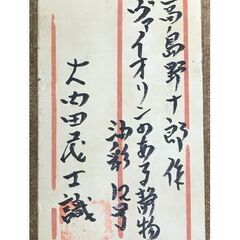 高島野十郎作
ヴァイオリンのある静物
油彩 12号
大内田茂士識